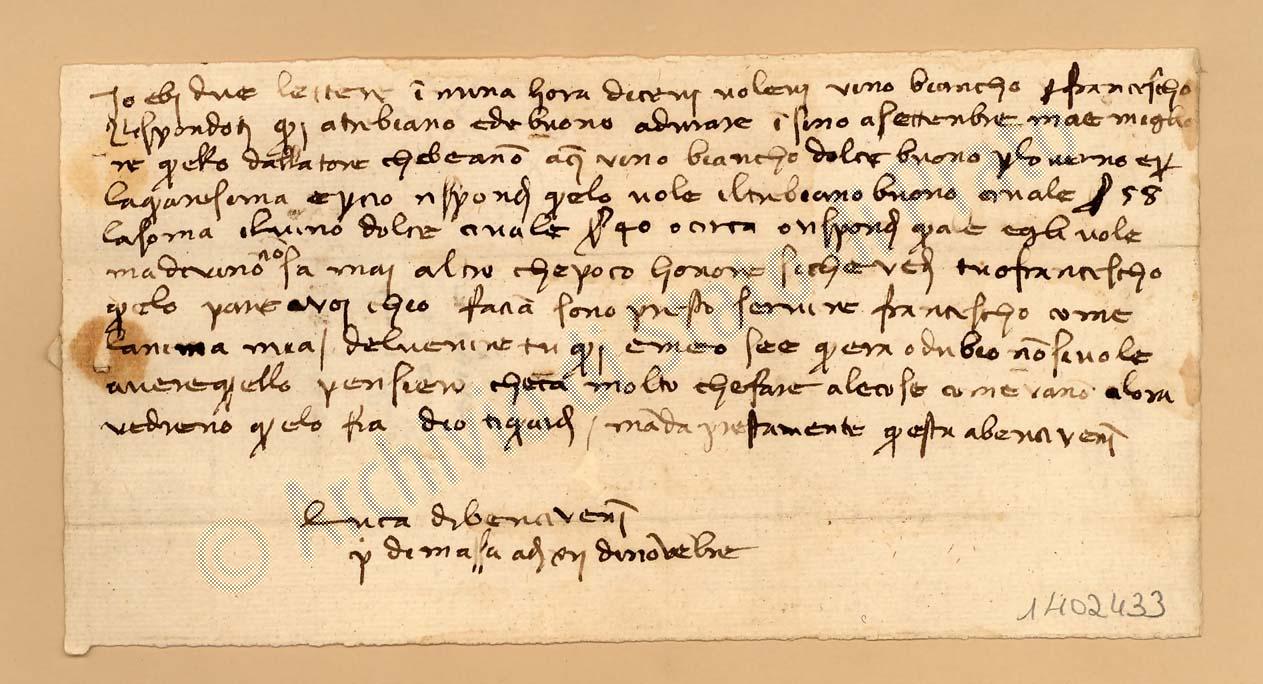 Io ebi due lettere ī nuna hora dicevi volevi vino biancho p franciescho
Rispondoti qi a trebiano ed è buono a durare īsino a settenbre ma e miglio
re qello dallatore che beano aq vino biancho dolce buono p lo verno e p
la qaresima e pcio rispondi qelo vole il trebiano buono civale f 58
la soma il vino dolce civale f 40 o circa o rispondi qale egli vole
ma di vino nō fa mai altro che poco honore siche vedi tu o franciescho
qelo pare a voi chio facia sono presto servire franciescho come
lanima mia / del venire tu qi e meo see qera o dubio nō si vole
avere qello pensiero checia molto che fare a le cose come vano alora
vedreno qelo fia dio ti guardi / māda prestamente qesta a benciveni
Luca di benciveni
p di massa adi xii di novēbre
1402433
© Archivio di Stato di Prato